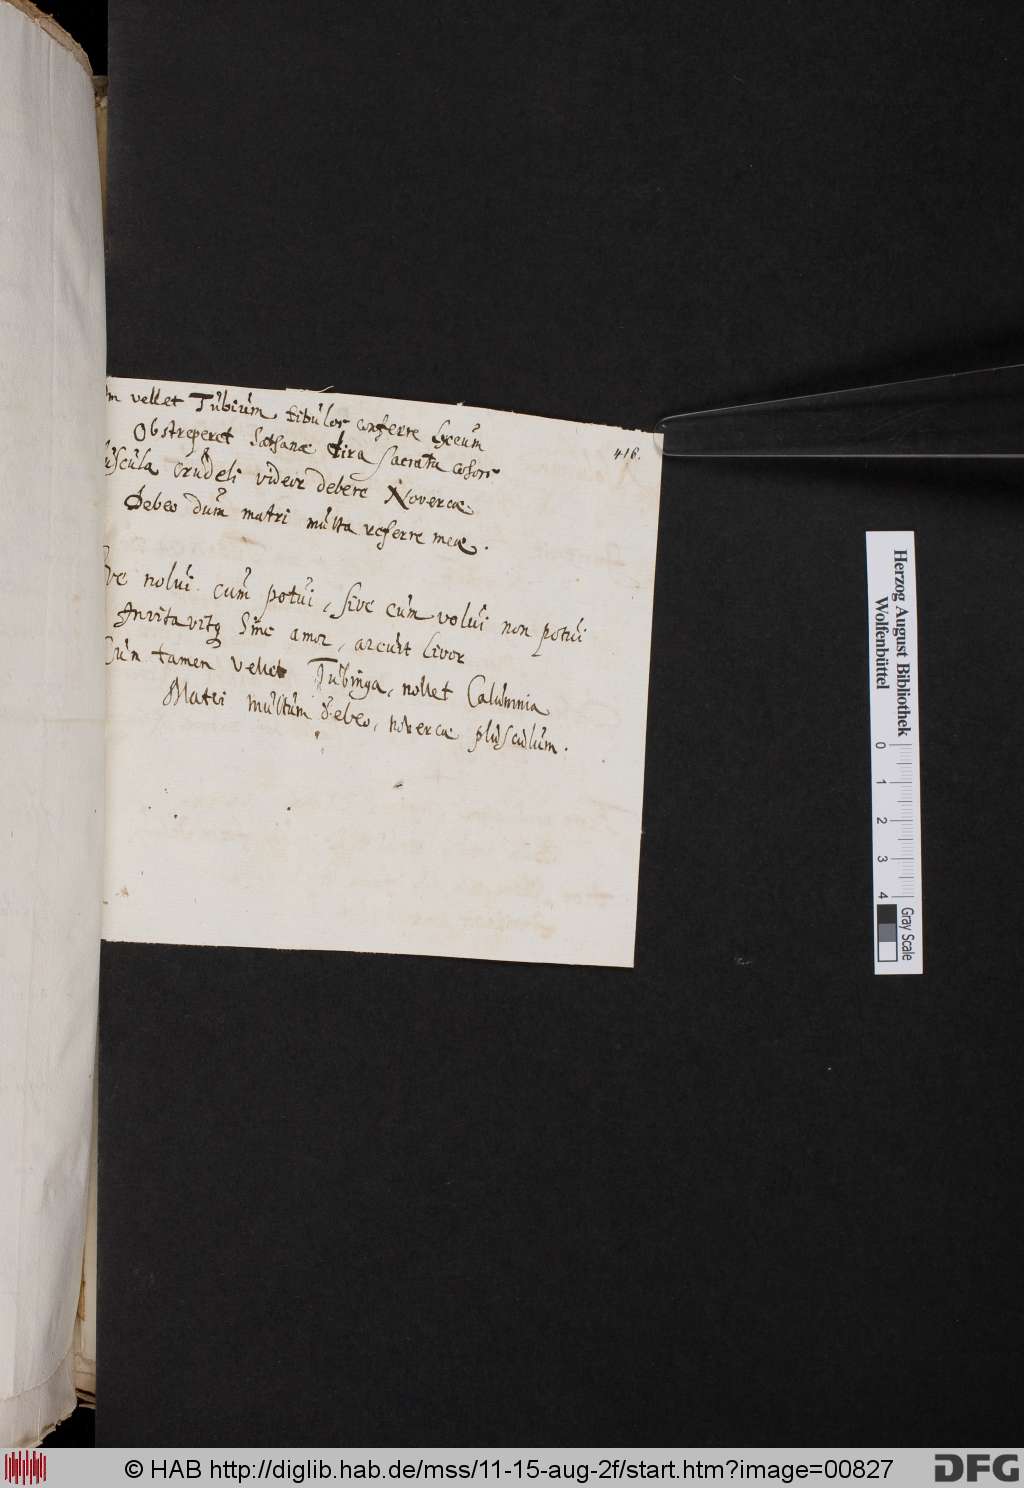 m vellet Tubium titulos conferre Lyceum
416.
Obstreperet Sathanæ dira sacrata cohors
uscula crudeli videor debere Novercæ
Debeo dum matri multa referre meæ.
ve nolui cum potui, sive cum volui non potui
Invitavitq Sine amor, arcuit livor
Cum tamen vellet Tubinga, nollet Calumnia
Matri multum debeo, novercæ plusculum.
Herzog August Bibliothek
Wolfenbüttel
0 1 2 3 4
Gray Scale
© HAB http://diglib.hab.de/mss/11-15-aug-2f/start.htm?image=00827
DFG